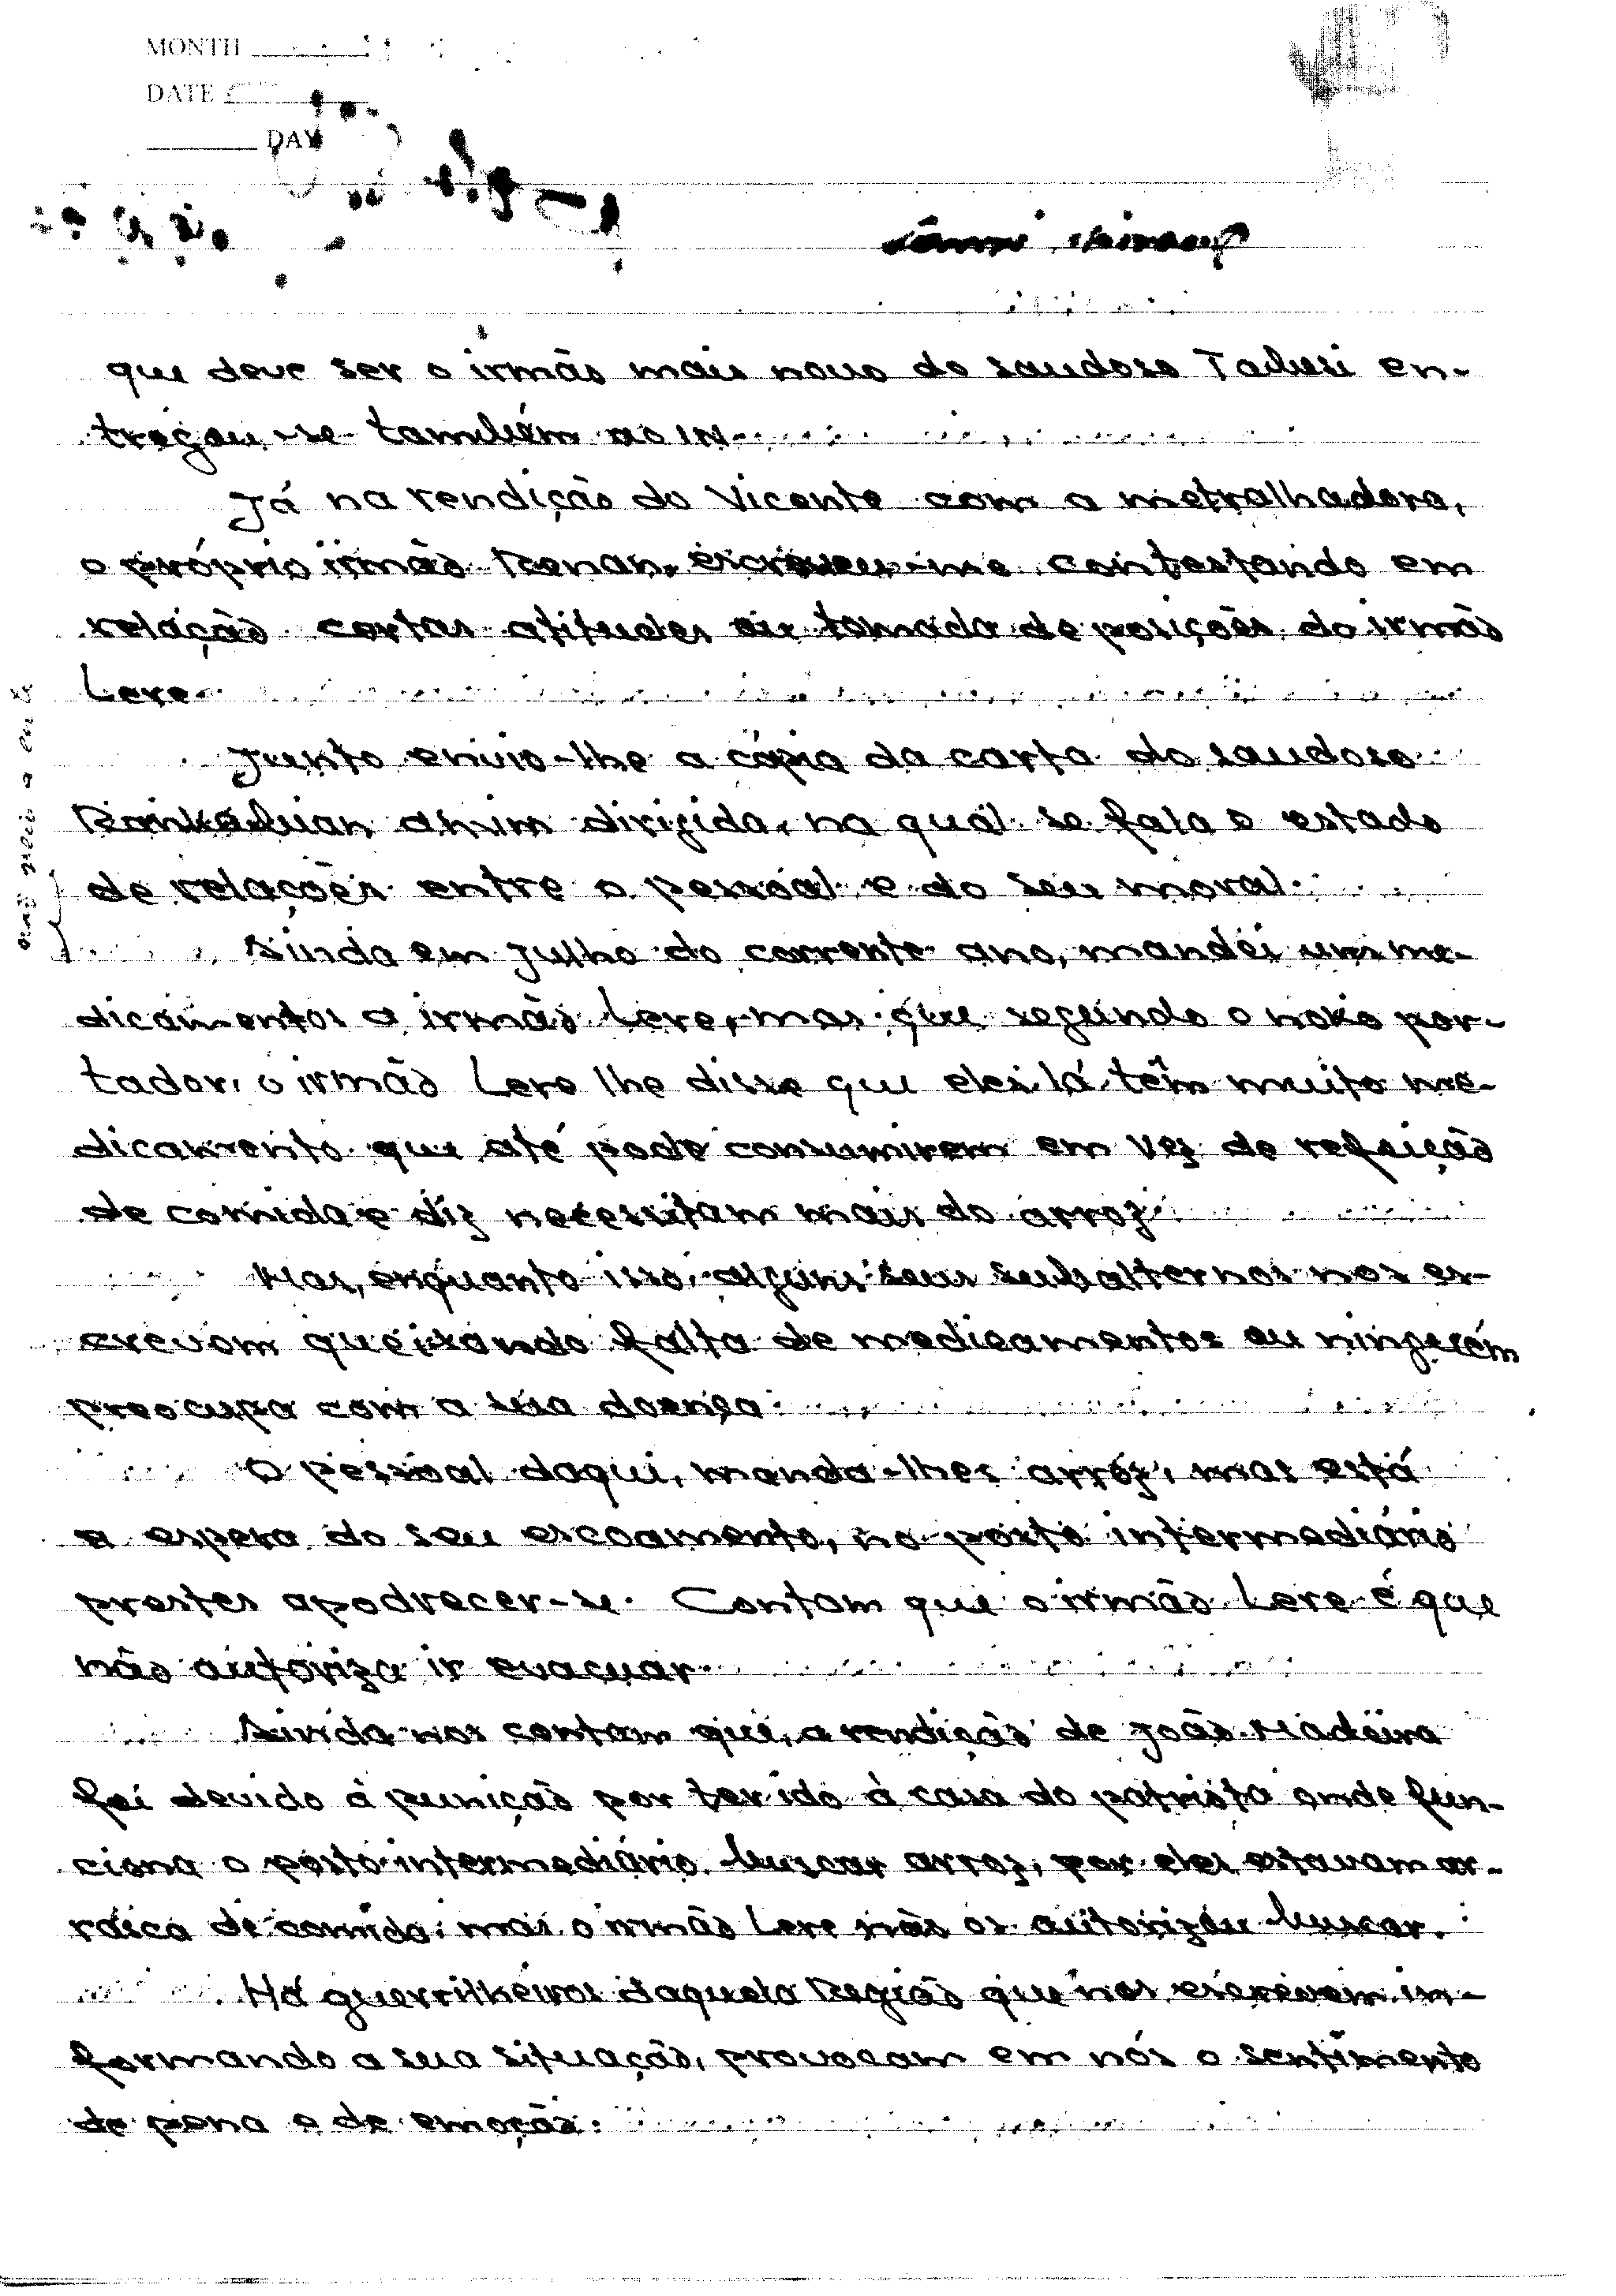 MONTH
DATE
DAY
que deve ser o irmão mais novo do saudoso Taduci en-
tregou-se também ao IN.
Já na rendição do Vicente com a metralhadora,
o próprio irmão Renan, escreveu-me contestando em
relação certas atitudes ou tomada de posições do irmão
Lere.
Junto envio-lhe a cópia da carta do saudoso
amim dirigida, na qual se fala o estado
de relações entre o pessoal e do seu moral.
Ainda em Julho do corrente ano, mandei uns me-
dicamentos o irmão Lere, mas que segundo o nosso por-
tador, o irmão Lere lhe disse que eles lá têm muito me-
dicamento que até pode consumirem em vez de refeição
de comida e diz necessitam mais do arroz.
Mas, enquanto isso, alguns seus subalternos nos es-
crevem queixando falta de medicamentos ou ninguém
preocupa com a sua doença.
O pessoal daqui, manda-lhes arroz, mas está
a espera do seu escoamento, no posto intermediário
prestes apodrecer-se. Contam que o irmão Lere é que
não autoriza ir evacuar.
Ainda nos contam que, a rendição de João Madeira
foi devido à punição por ter ido à casa do patriota onde fun-
ciona o posto intermediário buscar arroz, por eles estavam ar-
rasca de comida, mas o irmão Lere não os autorizou buscar.
Há guerrilheiros daquela Região que nos escrevem in-
formando a sua situação, provocam em nós o sentimento
de pena e de emoção.